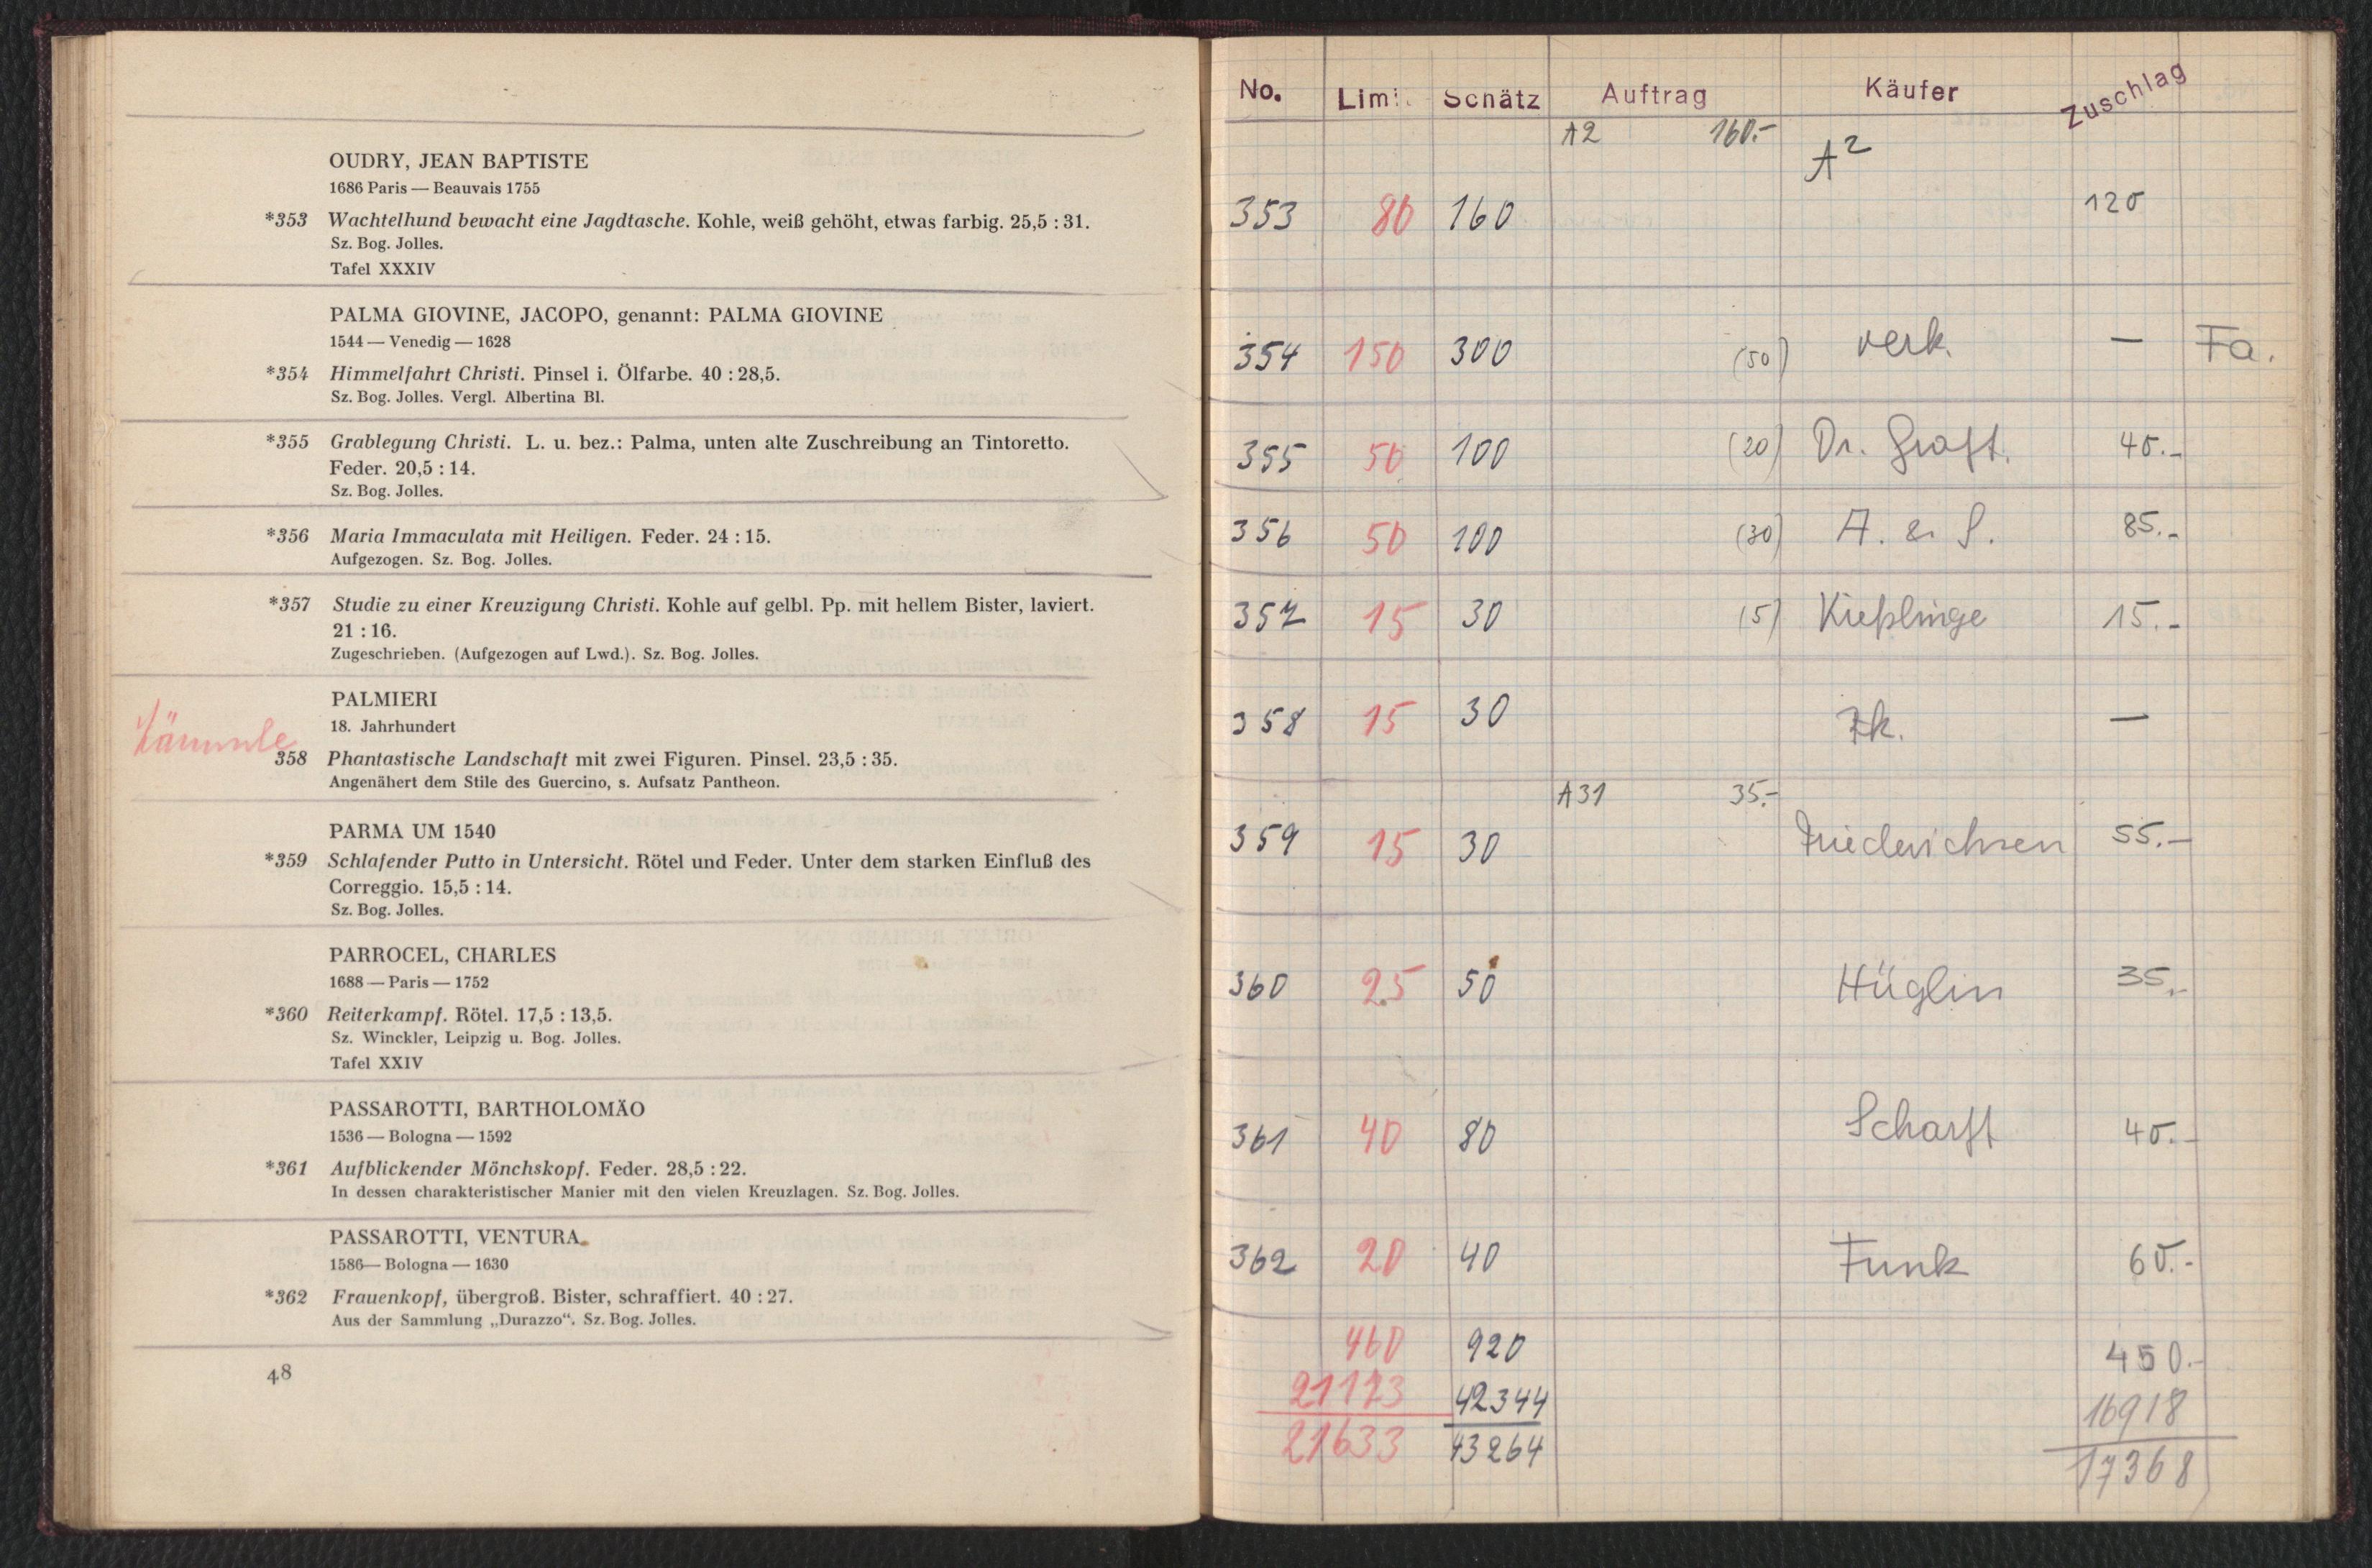 OUDRY, JEAN BAPTISTE
1686 Paris — Beauvais 1755
*353 Wachtelhund bewacht eine Jagdtasche. Kohle, weiß gehöht, etwas farbig. 25,5 : 31.
Sz. Bog. Jolles.
Tafel XXXIV
PALMA GIOVINE, JACOPO, genannt: PALMA GIOVINE
1544 — Venedig — 1628
*354 Himmelfahrt Christi. Pinsel i. Ölfarbe. 40 : 28,5.
Sz. Bog. Jolles. Vergl. Albertina Bl.
*355 Grablegung Christi. L. u. bez.: Palma, unten alte Zuschreibung an Tintoretto.
Feder. 20,5 : 14.
Sz. Bog. Jolles.
*356 Maria Immaculata mit Heiligen. Feder. 24 : 15.
Aufgezogen. Sz. Bog. Jolles.
*357 Studie zu einer Kreuzigung Christi. Kohle auf gelbl. Pp. mit hellem Bister, laviert.
21 : 16.
Zugeschrieben. (Aufgezogen auf Lwd.). Sz. Bog. Jolles.
PALMIERI
18. Jahrhundert
358 Phantastische Landschaft mit zwei Figuren. Pinsel. 23,5 : 35.
Angenähert dem Stile des Guercino, s. Aufsatz Pantheon.
PARMA UM 1540
*359 Schlafender Putto in Untersicht. Rötel und Feder. Unter dem starken Einfluß des
Correggio. 15,5 : 14.
Sz. Bog. Jolles.
PARROCEL, CHARLES
1688 — Paris — 1752
*360 Reiterkampf. Rötel. 17,5 : 13,5.
Sz. Winckler, Leipzig u. Bog. Jolles.
Tafel XXIV
PASSAROTTI, BARTHOLOMÄO
1536 — Bologna — 1592
*361 Aufblickender Mönchskopf. Feder. 28,5 : 22.
In dessen charakteristischer Manier mit den vielen Kreuzlagen. Sz. Bog. Jolles.
PASSAROTTI, VENTURA
1586— Bologna — 1630
*362 Frauenkopf, übergroß. Bister, schraffiert. 40 : 27.
Aus der Sammlung „Durazzo“. Sz. Bog. Jolles.
48
No. Limit Schätz Auftrag Käufer Zuschlag
A2 160.- A2
353 80 160 120
354 150 300 (50) verk. — Fa.
355 50 100 (20) Dr. Graft. 40.-
356 50 100 (30) A. & S. 85.-
357 15 30 (5) Kießlinge 15.-
358 15 30 Zk. —
A31 35.-
359 15 30 Friederichsen 55.-
360 25 50 Hüglin 35.-
361 40 80 Scharff 40.-
362 20 40 Funk 60.-
460 920 450.-
21173 42344 16918
21633 43264 17368